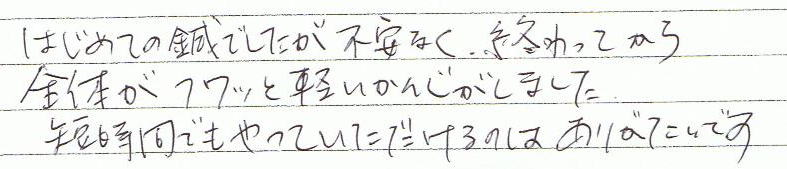 はじめての鍼でしたが不安なく、終わってから
全体がフワッと軽いかんじがしました。
短時間でもやっていただけるのはありがたいです